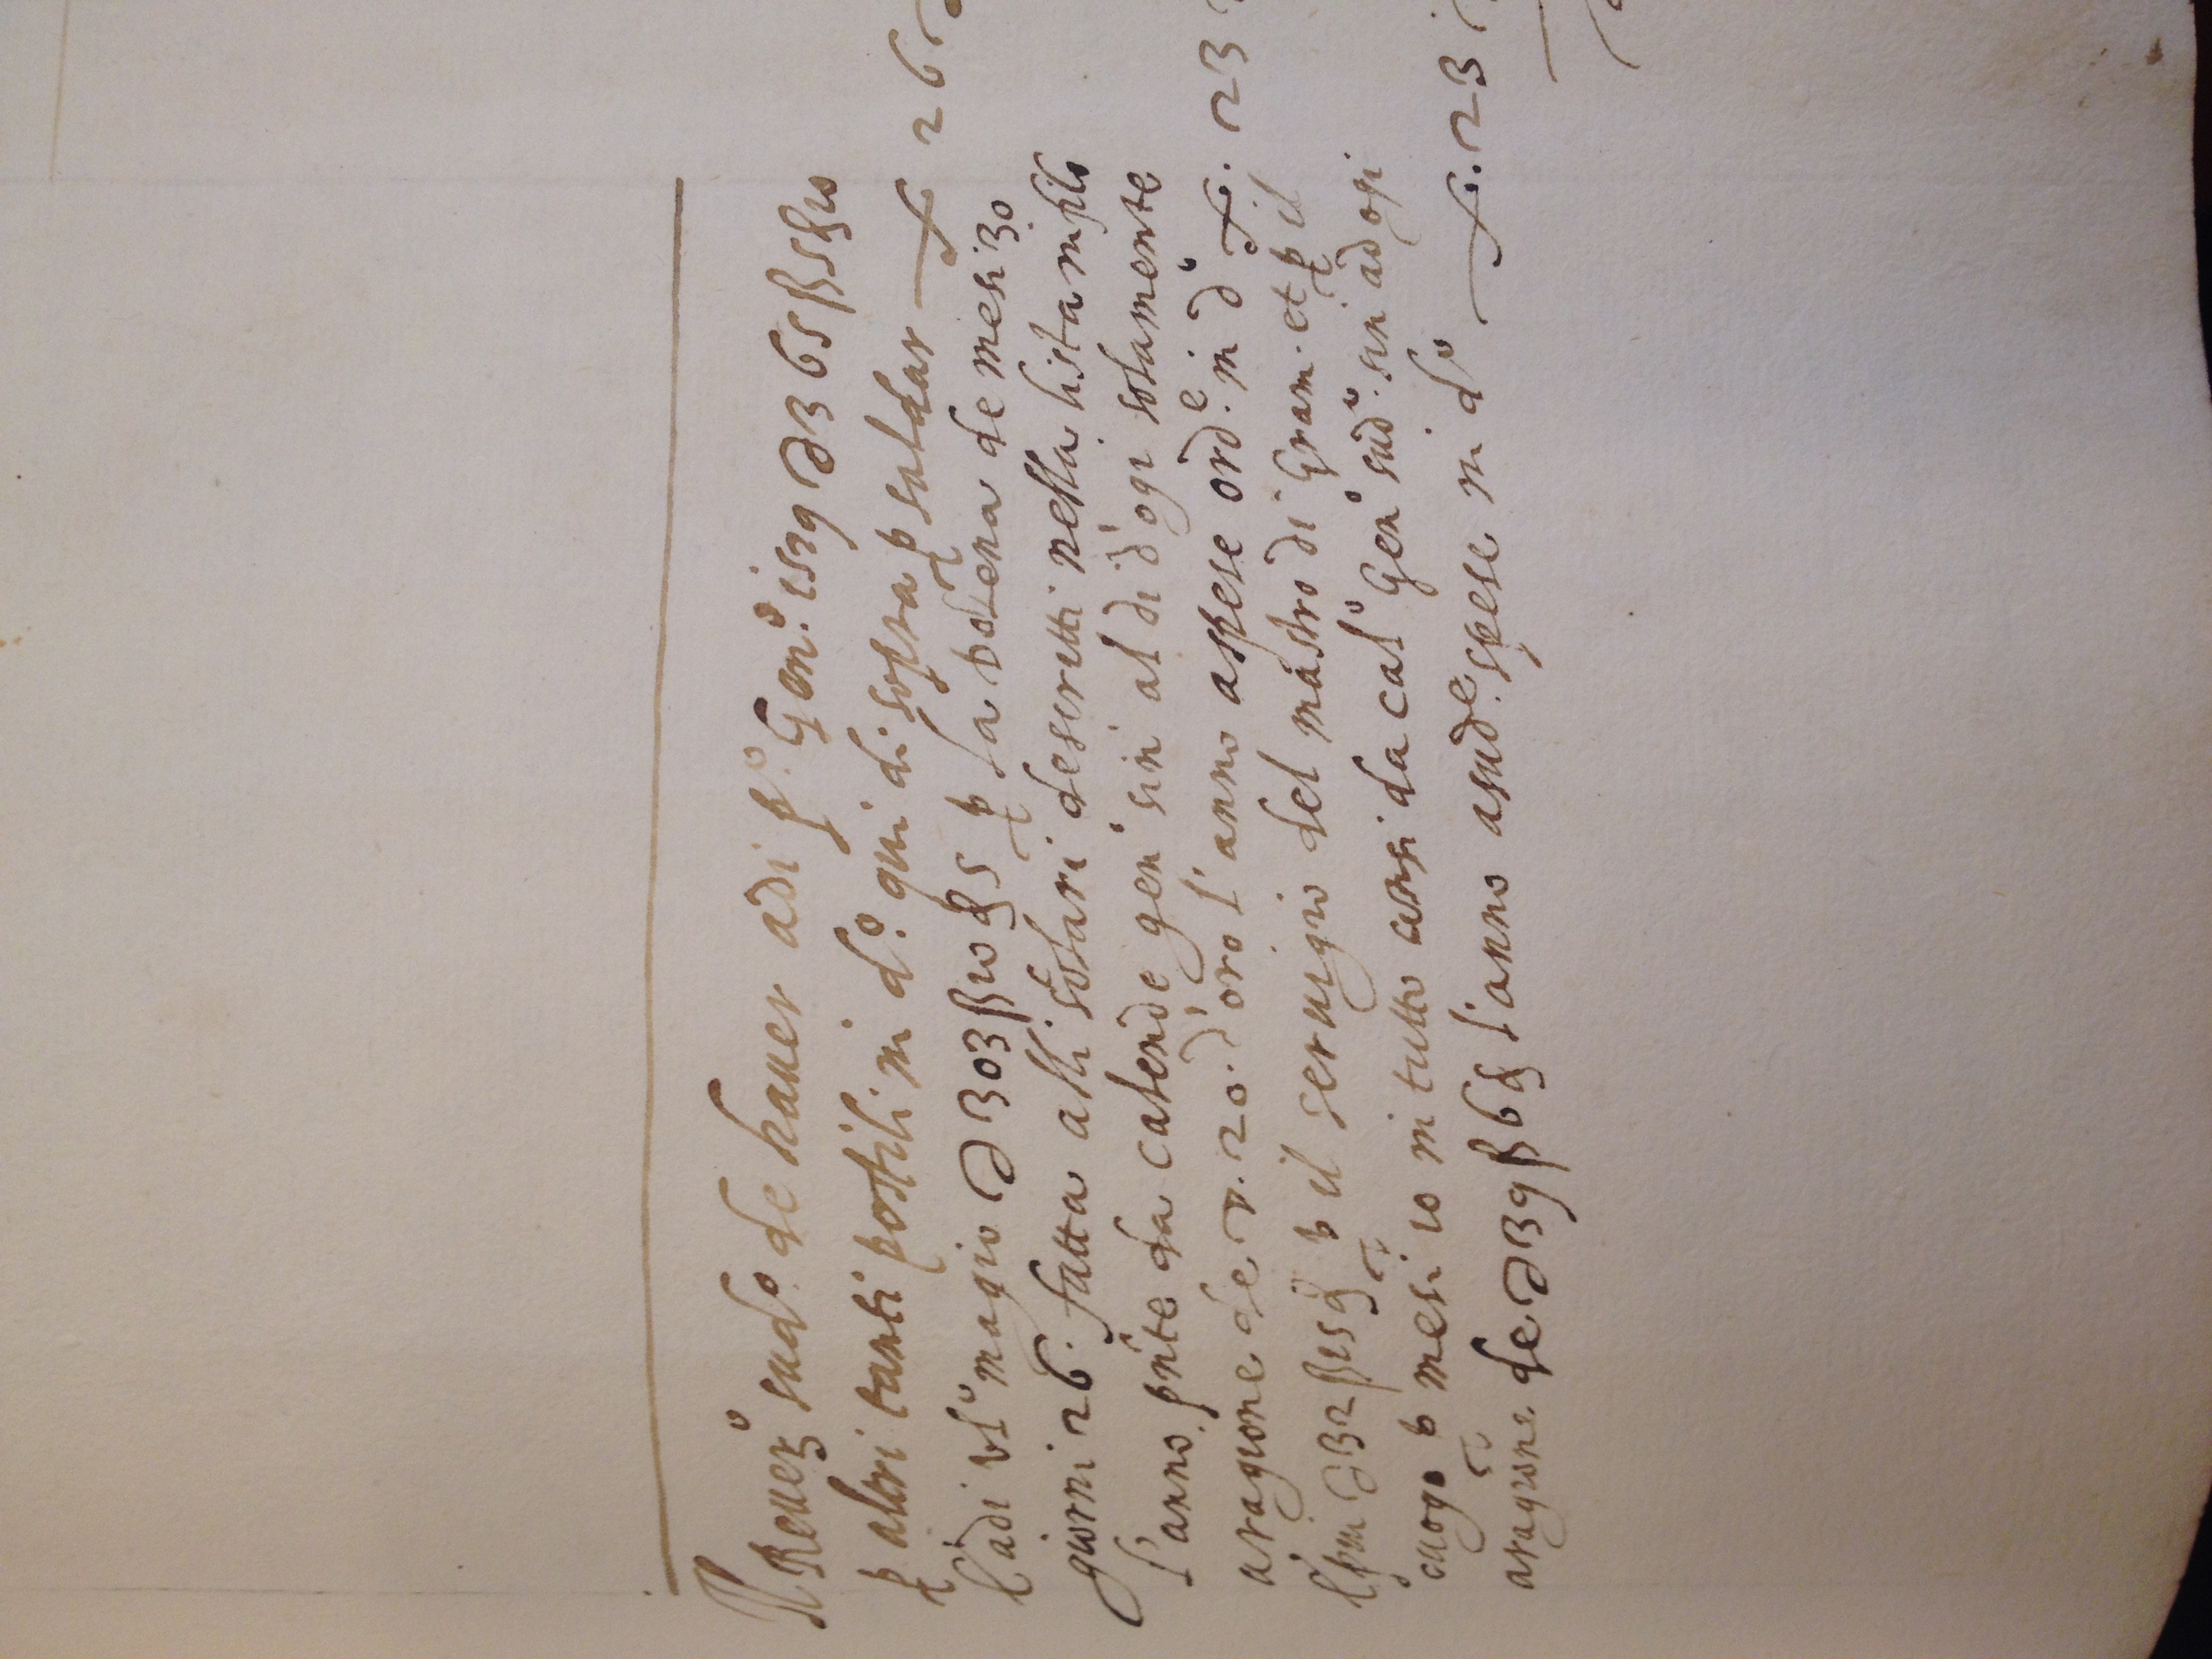 Il Reuer.º sud.º de hauer adi p.º Gen.º 1579 ∂ 365 ß 5 ℈ 10
ꝑ altri tanti postili in d.º qui di sopra ꝑ saldar — f. 26
E adi vl.º magio ∂ 303 ß 10 ℈ 5 ꝑ la dozena de mesi 30
giorni 26. fatta alli scolari descritti nella lista in filo
l'anno pnte da calende gen.º sin al di d'ogi solamente
aragione de v. 20. d'oro l'anno aspese ord.e in d.º f. 23
E piu ∂ 32 ß 15 ℈ ꝑ il seruigio del mastro di Gram. et ꝑ il
cuogo ꝑ mesi 10 in tutto corsi da cal.º Gen.º sud.º sin ad ogi
aragione de ∂ 39 ß 6 ℈ l'anno asud.e spese in d.º — f. 23